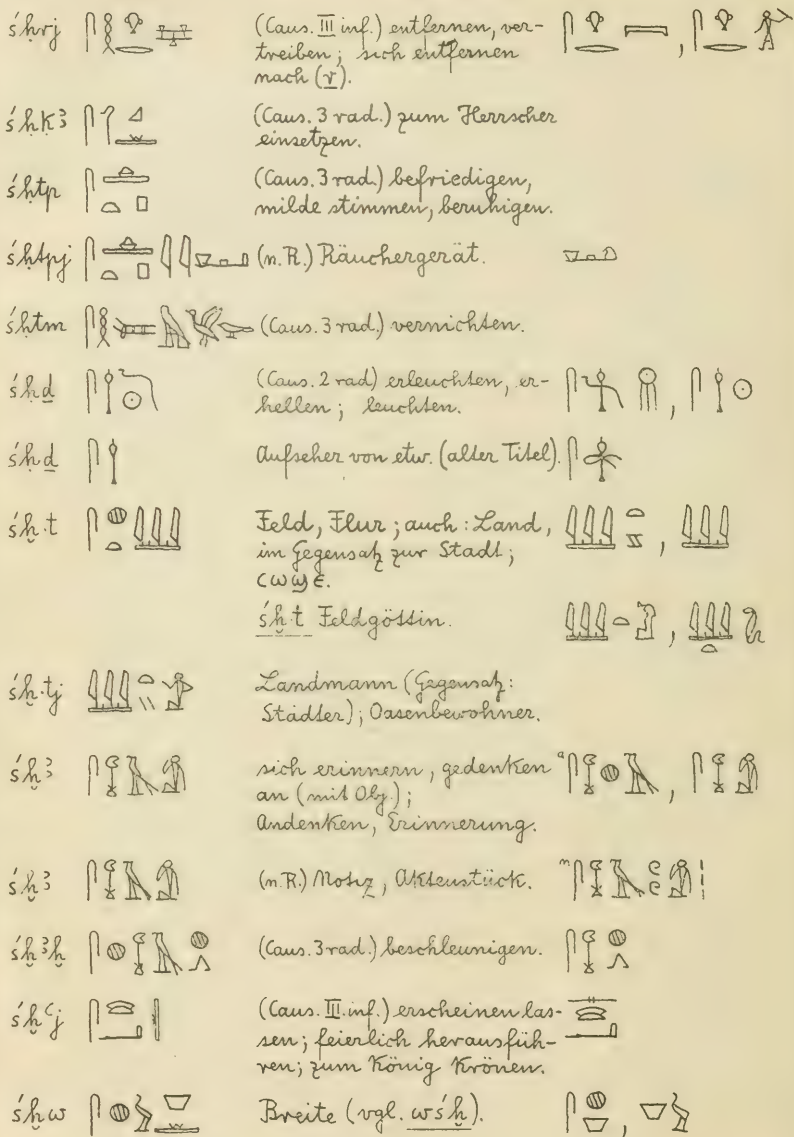 śḥrj (Caus. III inf.) entfernen, ver-
treiben; sich entfernen
nach (r).
śḥḳꜣ (Caus. 3 rad.) zum Herrscher
einsetzen.
śḥtp (Caus. 3 rad.) befriedigen,
milde stimmen, beruhigen.
śḥtpj (n. R.) Räuchergerät.
śḥtm (Caus. 3 rad.) vernichten.
śḥḏ (Caus. 2 rad) erleuchten, er-
hellen; leuchten.
śḥḏ Aufseher von etw. (alter Titel).
śḫ·t Feld, Flur; auch: Land,
im Gegensatz zur Stadt;
ⲥⲱϣⲉ.
śḫ·t Feldgöttin.
śḫ·tj Landmann (Gegensatz:
Städter); Oasenbewohner.
śḫꜣ sich erinnern, gedenken
an (mit Obj.);
Andenken, Erinnerung.
śḫꜣ (n. R.) Notiz, Aktenstück.
śḫꜣḫ (Caus. 3 rad.) beschleunigen.
śḫꜥj (Caus. III. inf.) erscheinen las-
sen; feierlich herausfüh-
ren; zum König krönen.
śḫw Breite (vgl. wśḫ).